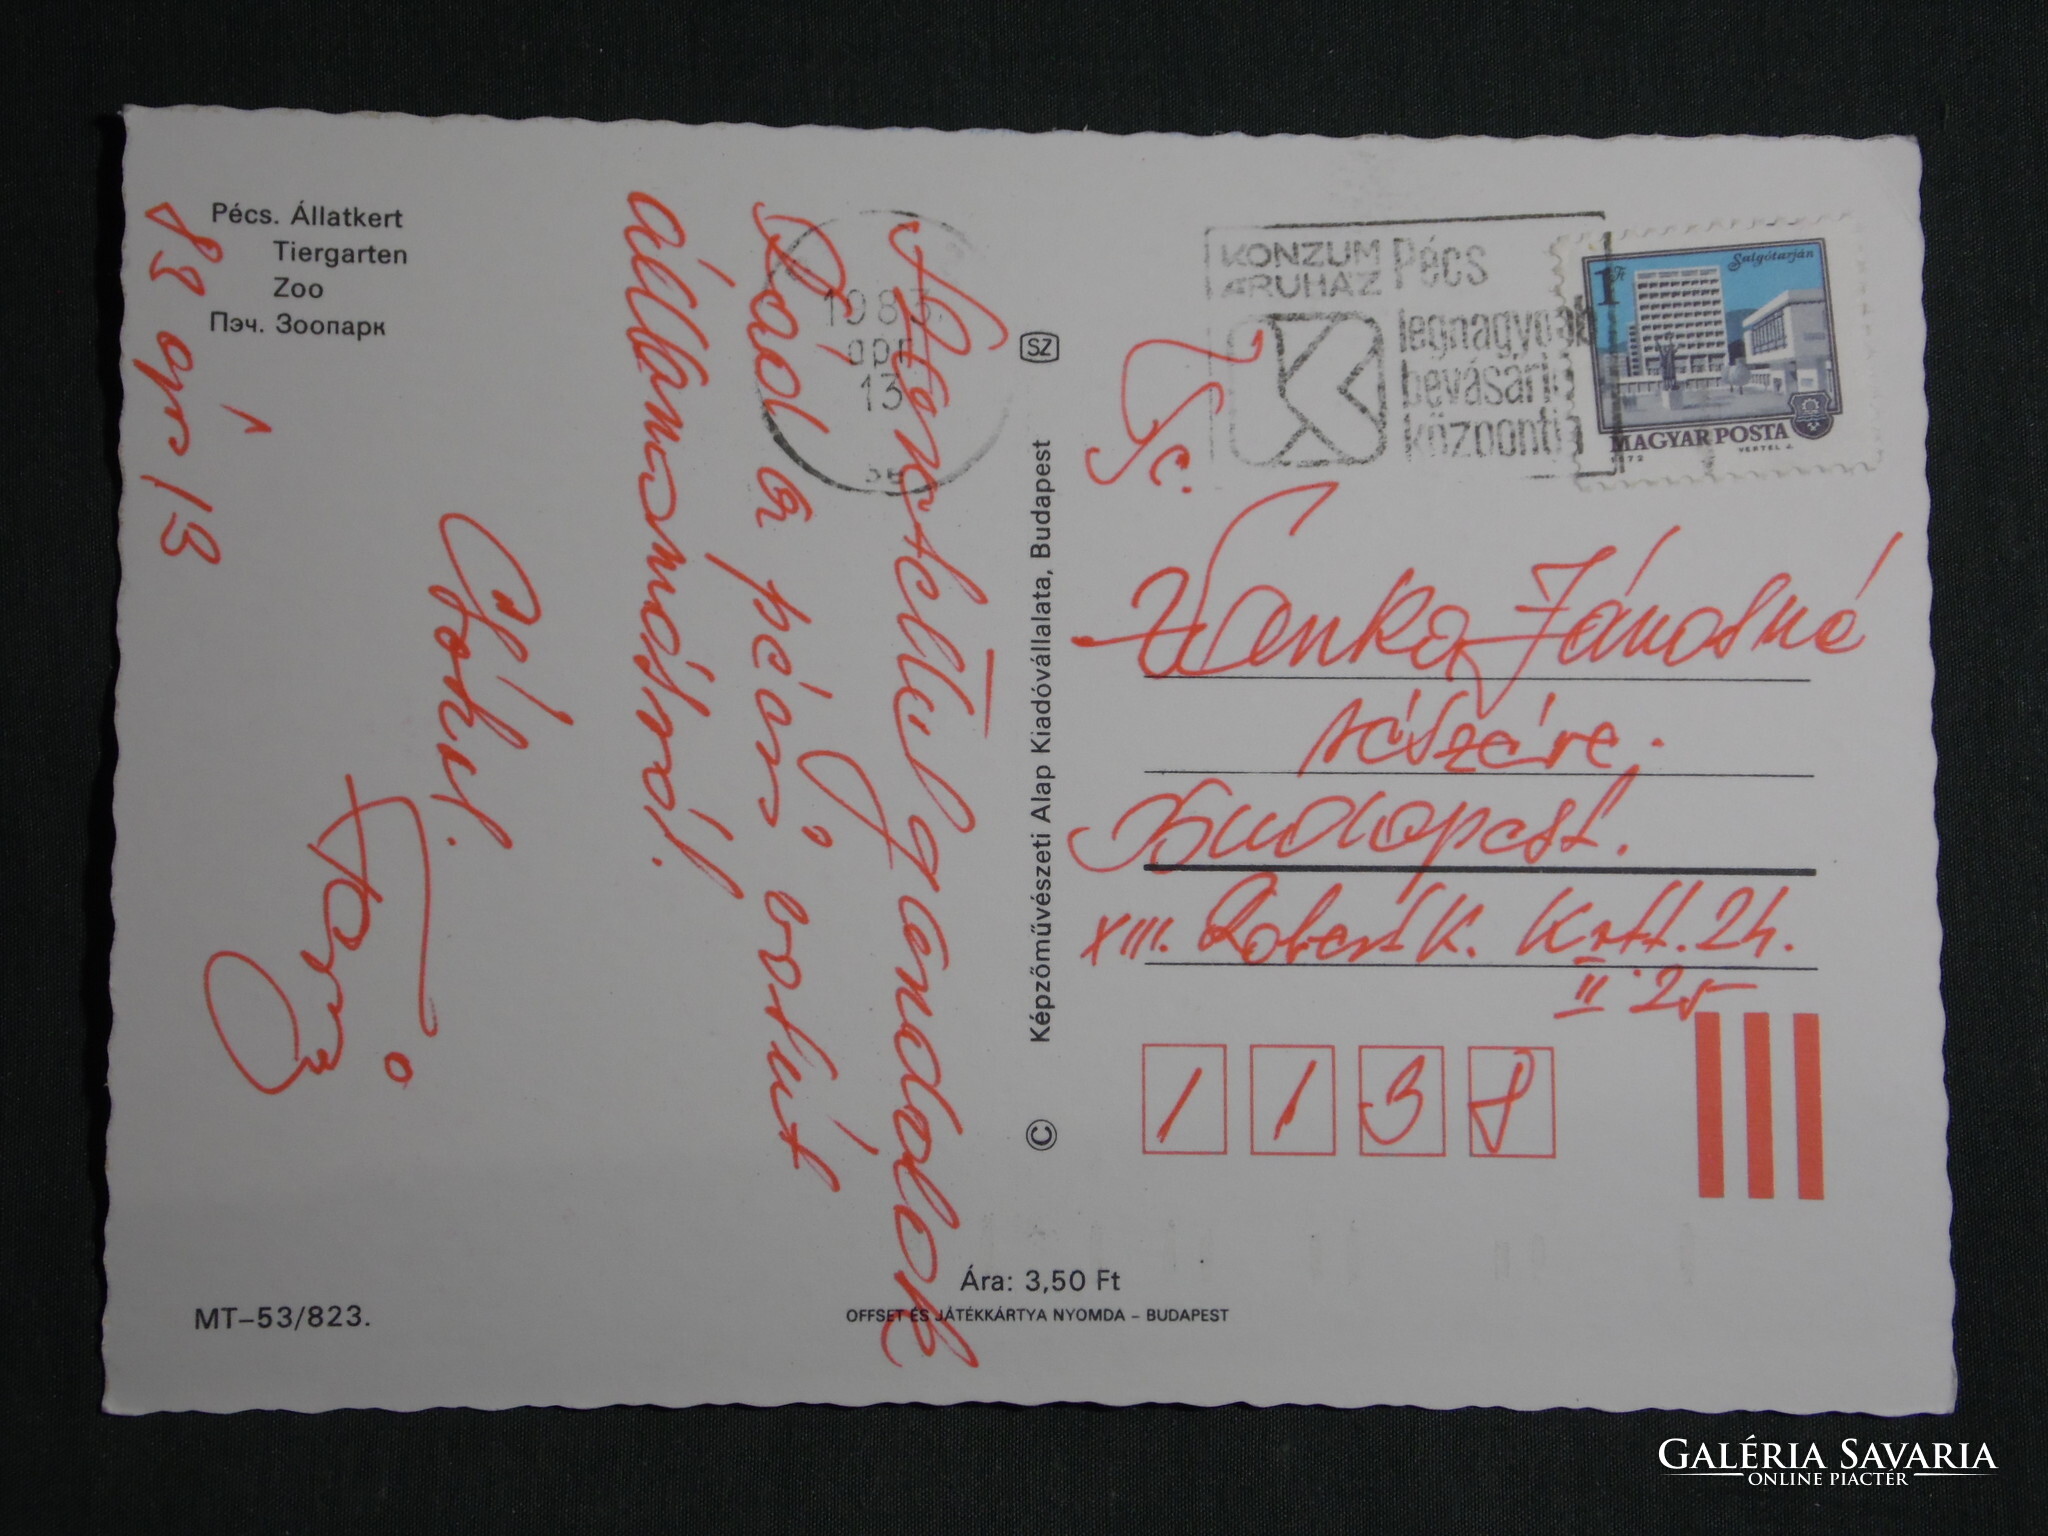 Pécs. Állatkert
Tiergarten
Zoo
Пэч. Зоопарк
83 ápr 13
Szeretettel gondolok
Rád a pécsi
állomásról.
MT–53/823.
1983
apr
13
SZ
Képzőművészeti Alap Kiadóvállalata, Budapest
©
Ára: 3,50 Ft
OFFSET ÉS JÁTÉKKÁRTYA NYOMDA – BUDAPEST
KONZUM ÁRUHÁZ
Pécs
legnagyobb
bevásárló
központja
1 Ft
Salgótarján
MAGYAR POSTA
1972
VERTEL J.
Jánosné
részére.
Budapest.
XIII. Robert K. Krt. 24.
II. 25
1138
GALÉRIA SAVARIA
ONLINE PIACTÉR